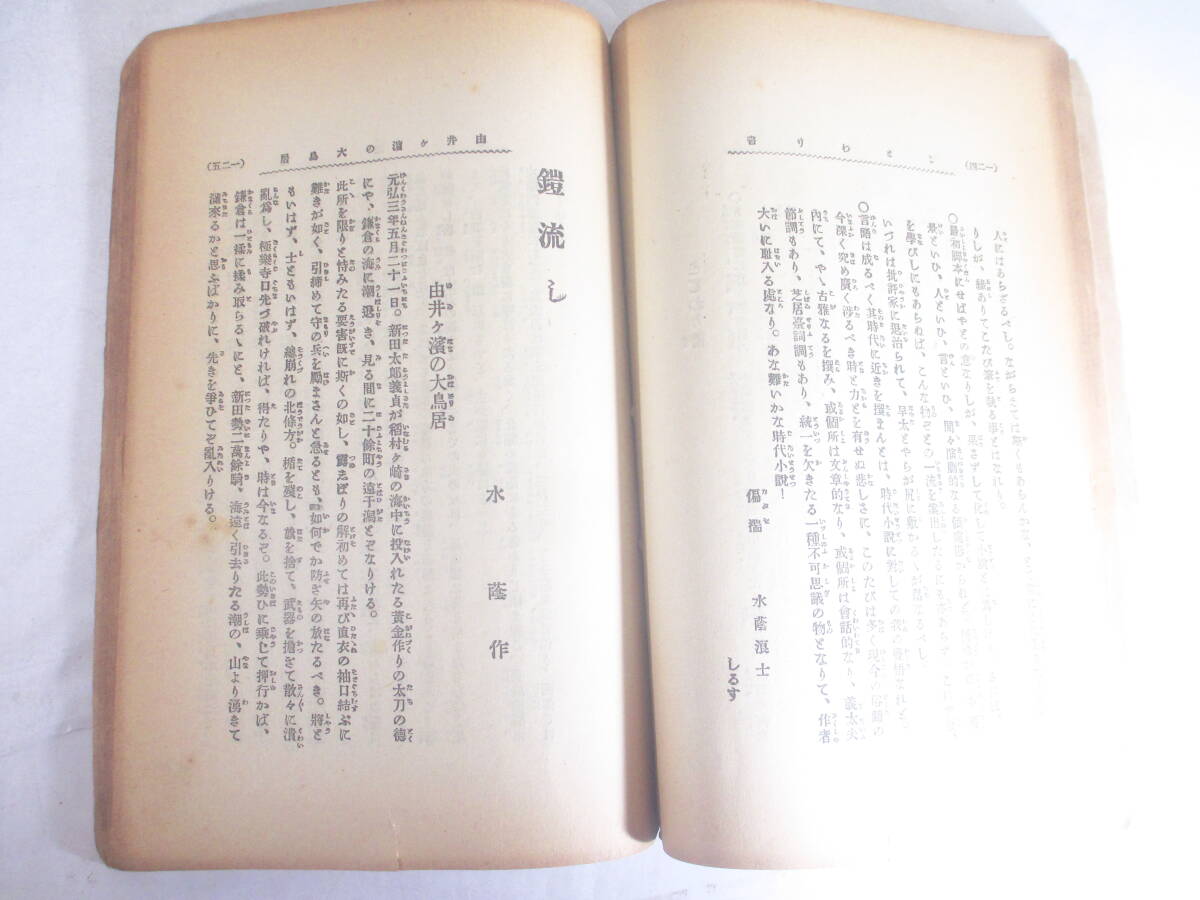 ことわり書
(一二四)
人にはあらざるべし。
りしが、縁ありてこたび筆を執る事とはなれり。
○最初脚本にせばやとの意なりしが、果さずして化して小説と
景といひ、人といひ、言といひ、間々演劇的なる
を學びしにもあらねば、こんな物ぞとの一流を案出したるにも
いづれは批評家に退治られて、早太とやらが尻に敷かるゝが
○言語は成るべく其時代に近きを撰まんとは、時代小説に對しての我の覺悟なれど、
今深く究め廣く渉るべき時と力とを有せぬ悲しさに、このたびは多く現今の俗語の
内にて、やゝ古雅なるを撰み、或個所は文章的なり、或個所は會話的なり、義太夫
節調もあり、芝居臺詞調もあり、統一を欠きたる一種不可思議の物となりて、作者
大いに耻入る處なり。あな難いかな時代小説!
水蔭浪士
しるす
由井ヶ濱の大鳥居
(一二五)
鎧流し
水蔭作
由井ヶ濱の大鳥居
元弘三年五月二十一日。新田太郎義貞が稻村ヶ崎の海中に投入れたる黄金作りの太刀の德
にや、鎌倉の海に潮退き、見る間に二十餘町の遠干潟とぞなりける。
此所を限りと恃みたる要害既に斯くの如し、露しぼりの解初めては再び直衣の袖口結ぶに
難きが如く、引締めて守の兵を勵まさんと急るとも、如何でか防ぎ矢の放たるべき。將と
もいはず、士ともいはず、總崩れの北條方。楯を殘し、旗を捨て、武器を擔ぎて散々に潰
亂爲し、極樂寺口先づ破れければ、得たりや、時は今なるぞ。此勢ひに乘じて押行かば、
鎌倉は一揉に揉み取らるゝにと、新田勢二萬餘騎、海遠く引去りたる潮の、山より湧きて
溜來るかと思ふばかりに、先きを爭ひてぞ亂入りける。